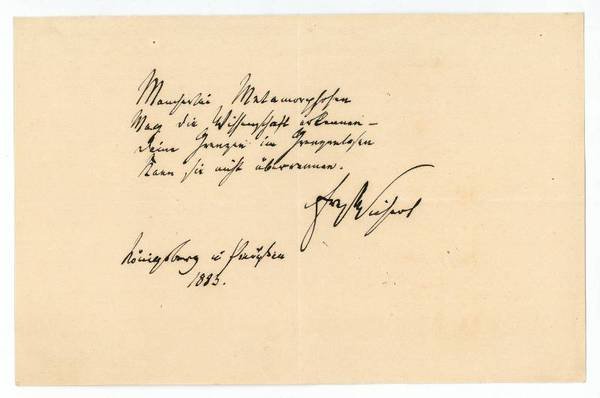 Mancherlei Metamorphosen
Mag die Wissenschaft erkennen –
Deine Grenzen im Grenzenlosen
Kann sie nicht überrennen.
Ernst Wichert
Königsberg in Preußen
1885.